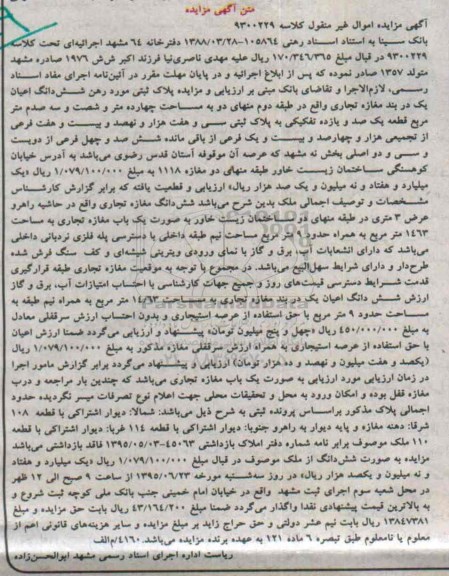 متن آگهی مزایده
آگهی مزایده اموال غیر منقول کلاسه ۹۳۰۰۲۲۹
بانک سینا به استناد اسناد رهنی ۱۰۵۸۶۴-۱۳۸۸/۰۳/۲۸ دفترخانه ۶۴ مشهد اجرائیه‌ای تحت کلاسه
۹۳۰۰۲۲۹ در قبال مبلغ ۱۷۰/۳۴۶/۳۶۵ ریال علیه مهدی ناصری‌نیا فرزند اکبر ش‌ش ۱۹۷۶ صادره مشهد
متولد ۱۳۵۷ صادر نموده که پس از ابلاغ اجرائیه و در پایان مهلت مقرر در آئین‌نامه اجرای مفاد اسناد
رسمی، لازم‌الاجرا و تقاضای بانک مبنی بر ارزیابی و مزایده پلاک ثبتی مورد رهن شش‌دانگ اعیان
یک در بند مغازه تجاری واقع در طبقه دوم منهای دو به مساحت چهارده متر و شصت و سه صدم متر
مربع قطعه یک صد و یازده تفکیکی به پلاک ثبتی سی و هفت هزار و نهصد و بیست و هفت فرعی
از تجمیعی هزار و چهارصد و بیست و یک فرعی از باقی مانده شش صد و چهل فرعی از دویست
و سی و دو اصلی بخش نه مشهد که عرصه آن موقوفه آستان قدس رضوی می‌باشد به آدرس خیابان
کوهسنگی ساختمان زیست خاور طبقه منهای دو مغازه ۱۱۱۸ به مبلغ ۱/۰۷۹/۱۰۰/۰۰۰ ریال «یک
میلیارد و هفتاد و نه میلیون و یک صد هزار ریال» ارزیابی و قطعیت یافته که برابر گزارش کارشناس
مشخصات و توصیف اجمالی ملک بدین شرح می‌باشد شش‌دانگ مغازه تجاری واقع در حاشیه راهرو
عرض ۳ متری در طبقه منهای دو ساختمان زیست خاور به صورت یک باب مغازه تجاری به مساحت
۱۴۶۳ متر مربع به همراه حدود ۹ متر مربع مساحت نیم طبقه داخلی با دسترسی پله فلزی نردبانی داخلی
می‌باشد که دارای انشعابات آب، برق و گاز با نمای ورودی ویترینی شیشه‌ای و کف سنگ فرش شده
طرح‌دار و دارای شرایط سهل‌البیع می‌باشد. در مجموع با توجه به موقعیت مغازه تجاری طبقه قرارگیری
قدمت شرایط دسترسی قیمت‌های روز و جمیع جهات کارشناسی با احتساب امتیازات آب، برق و گاز
ارزش شش دانگ اعیان یک در بند مغازه تجاری به مساحت ۱۴/۶۳ متر مربع به همراه نیم طبقه به
مساحت حدود ۹ متر مربع با حق استفاده از عرصه استیجاری و بدون احتساب ارزش سرقفلی معادل
به مبلغ ۴۵۰/۰۰۰/۰۰۰ ریال «چهل و پنج میلیون تومان» پیشنهاد و ارزیابی می‌گردد ضمنا ارزش اعیان
با حق استفاده از عرصه استیجاری به همراه ارزش سرقفلی مغازه مذکور به مبلغ ۱/۰۷۹/۱۰۰/۰۰۰ ریال
(یکصد و هفت میلیون و نهصد و ده هزار تومان) ارزیابی و پیشنهاد می‌گردد برابر گزارش مامور اجرا
در زمان ارزیابی مورد ارزیابی به صورت یک باب مغازه تجاری می‌باشد که چندین بار مراجعه و درب
مغازه قفل بوده و امکان ورود به محل و تحقیقات محلی جهت اعلام نوع تصرفات میسر نگردیده حدود
اجمالی پلاک مذکور براساس پرونده ثبتی به شرح ذیل می‌باشد: شمالا: دیوار اشتراکی با قطعه ۱۰۸
شرقا: دهنه مغازه و پایه دیوار به راهرو جنوبا: دیوار اشتراکی با قطعه ۱۱۴ غربا: دیوار اشتراکی با قطعه
۱۱۰ ملک موصوف برابر نامه شماره دفتر املاک بازداشتی ۴۵۰۶۳-۱۳۹۵/۰۵/۰۳ فاقد بازداشتی می‌باشد
مزایده به صورت شش‌دانگ از ملک موصوف در قبال مبلغ ۱/۰۷۹/۱۰۰/۰۰۰ ریال «یک میلیارد و هفتاد
و نه میلیون و یکصد هزار ریال» در روز سه‌شنبه مورخه ۱۳۹۵/۰۶/۲۳ از ساعت ۹ صبح الی ۱۲ ظهر
در محل شعبه سوم اجرای ثبت مشهد واقع در خیابان امام خمینی جنب بانک ملی کوچه ثبت شروع و
به بالاترین قیمت پیشنهادی نقدا واگذار می‌گردد ضمنا مبلغ ۴۳/۱۶۴/۲۰۰ ریال بابت حق مزایده و مبلغ
۱۳۸۴۷۳۸۱ ریال بابت نیم عشر دولتی و حق حراج زاید بر مبلغ مزایده و سایر هزینه‌های قانونی اعم از
معلوم یا نامعلوم طبق تبصره ۶ ماده ۱۲۱ به عهده برنده مزایده می‌باشد. ۴۱۶۰/م‌الف
ریاست اداره اجرای اسناد رسمی مشهد ابوالحسن‌زاده